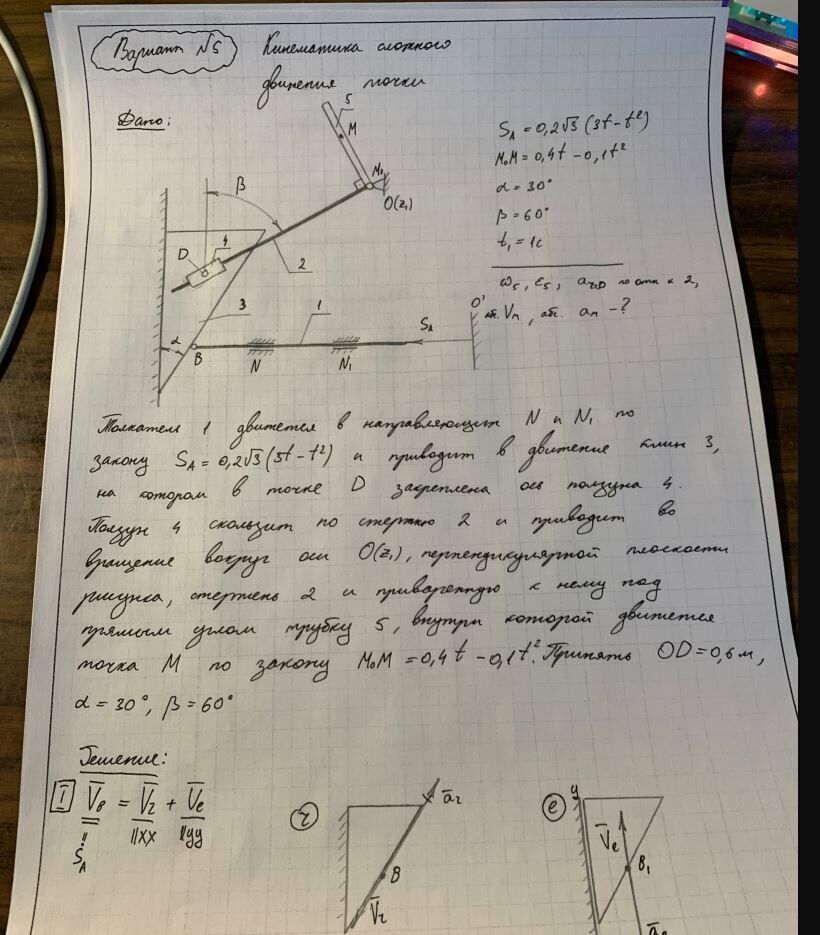 Вариант N5
Кинематика сложного
движения точки
Дано:
S_A = 0,2√3 (3t - t²)
M₀M = 0,4t - 0,1t²
α = 30°
β = 60°
t₁ = 1с
ω₅, ε₅, a_rD по отн к 2,
абс. V_M, абс. a_M - ?
5
M
M₀
O(z₁)
β
D
4
2
3
1
S_A
O'
α
B
N
N₁
Толкатель 1 движется в направляющих N и N₁ по
закону S_A = 0,2√3 (3t - t²) и приводит в движение клин 3,
на котором в точке D закреплена ось ползуна 4.
Ползун 4 скользит по стержню 2 и приводит во
вращение вокруг оси O(z₁), перпендикулярной плоскости
рисунка, стержень 2 и приваренную к нему под
прямым углом трубку 5, внутри которой движется
точка M по закону M₀M = 0,4t - 0,1t². Принять OD = 0,6 м,
α = 30°, β = 60°
Решение:
I V̄_B = V̄_r + V̄_e
∥xx ∥yy
Ṡ_A
r
ā_r
B
V̄_r
e
y
V̄_e
B₁